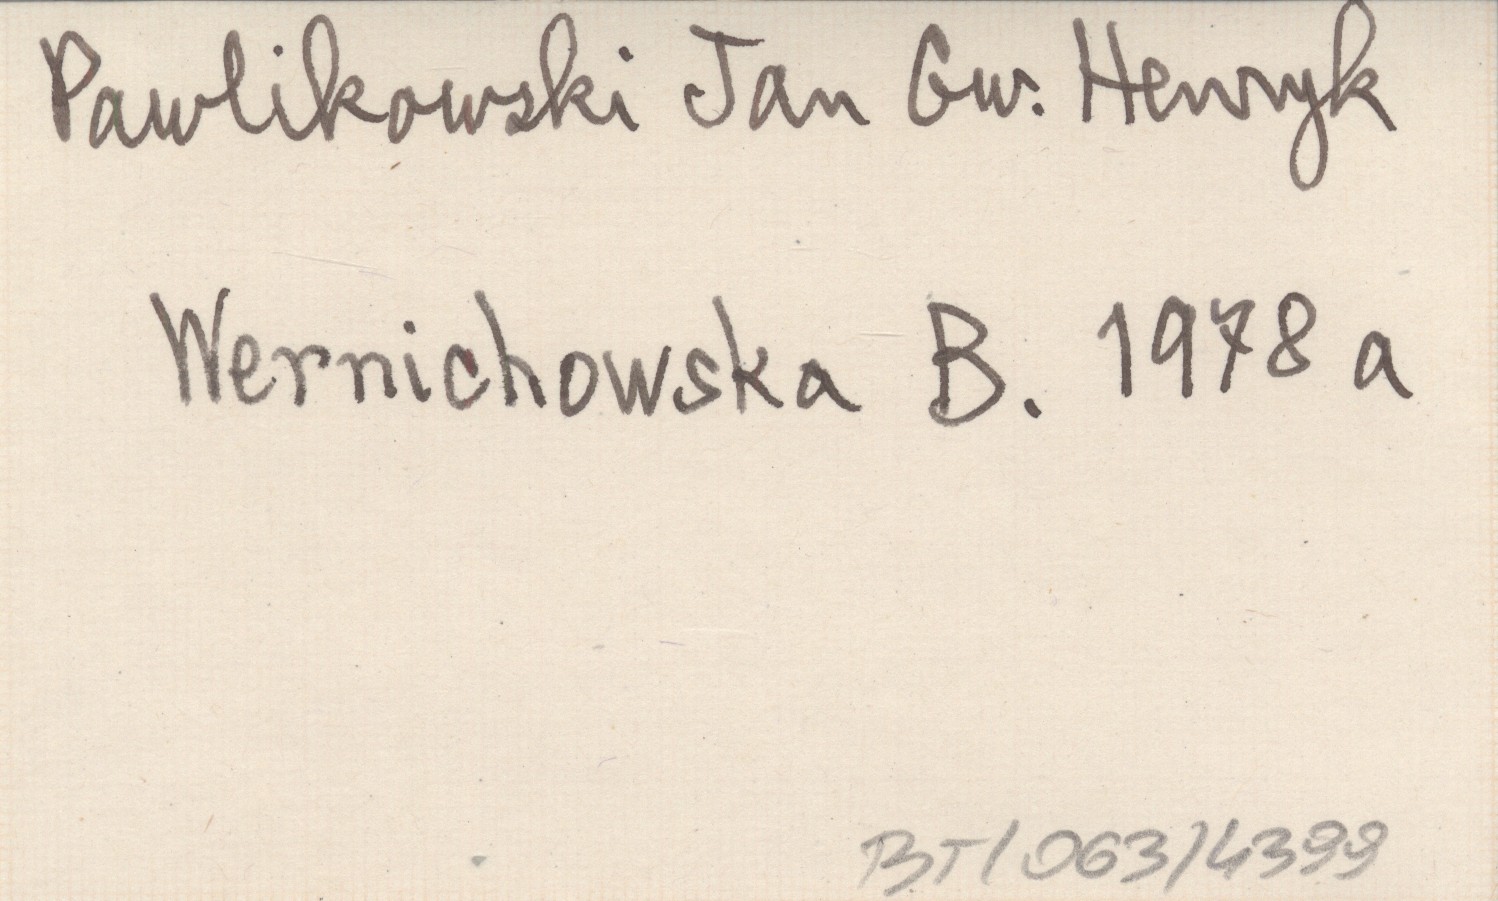 Pawlikowski Jan Gw. Henryk
Wernichowska B. 1978 a
BT/063/4399